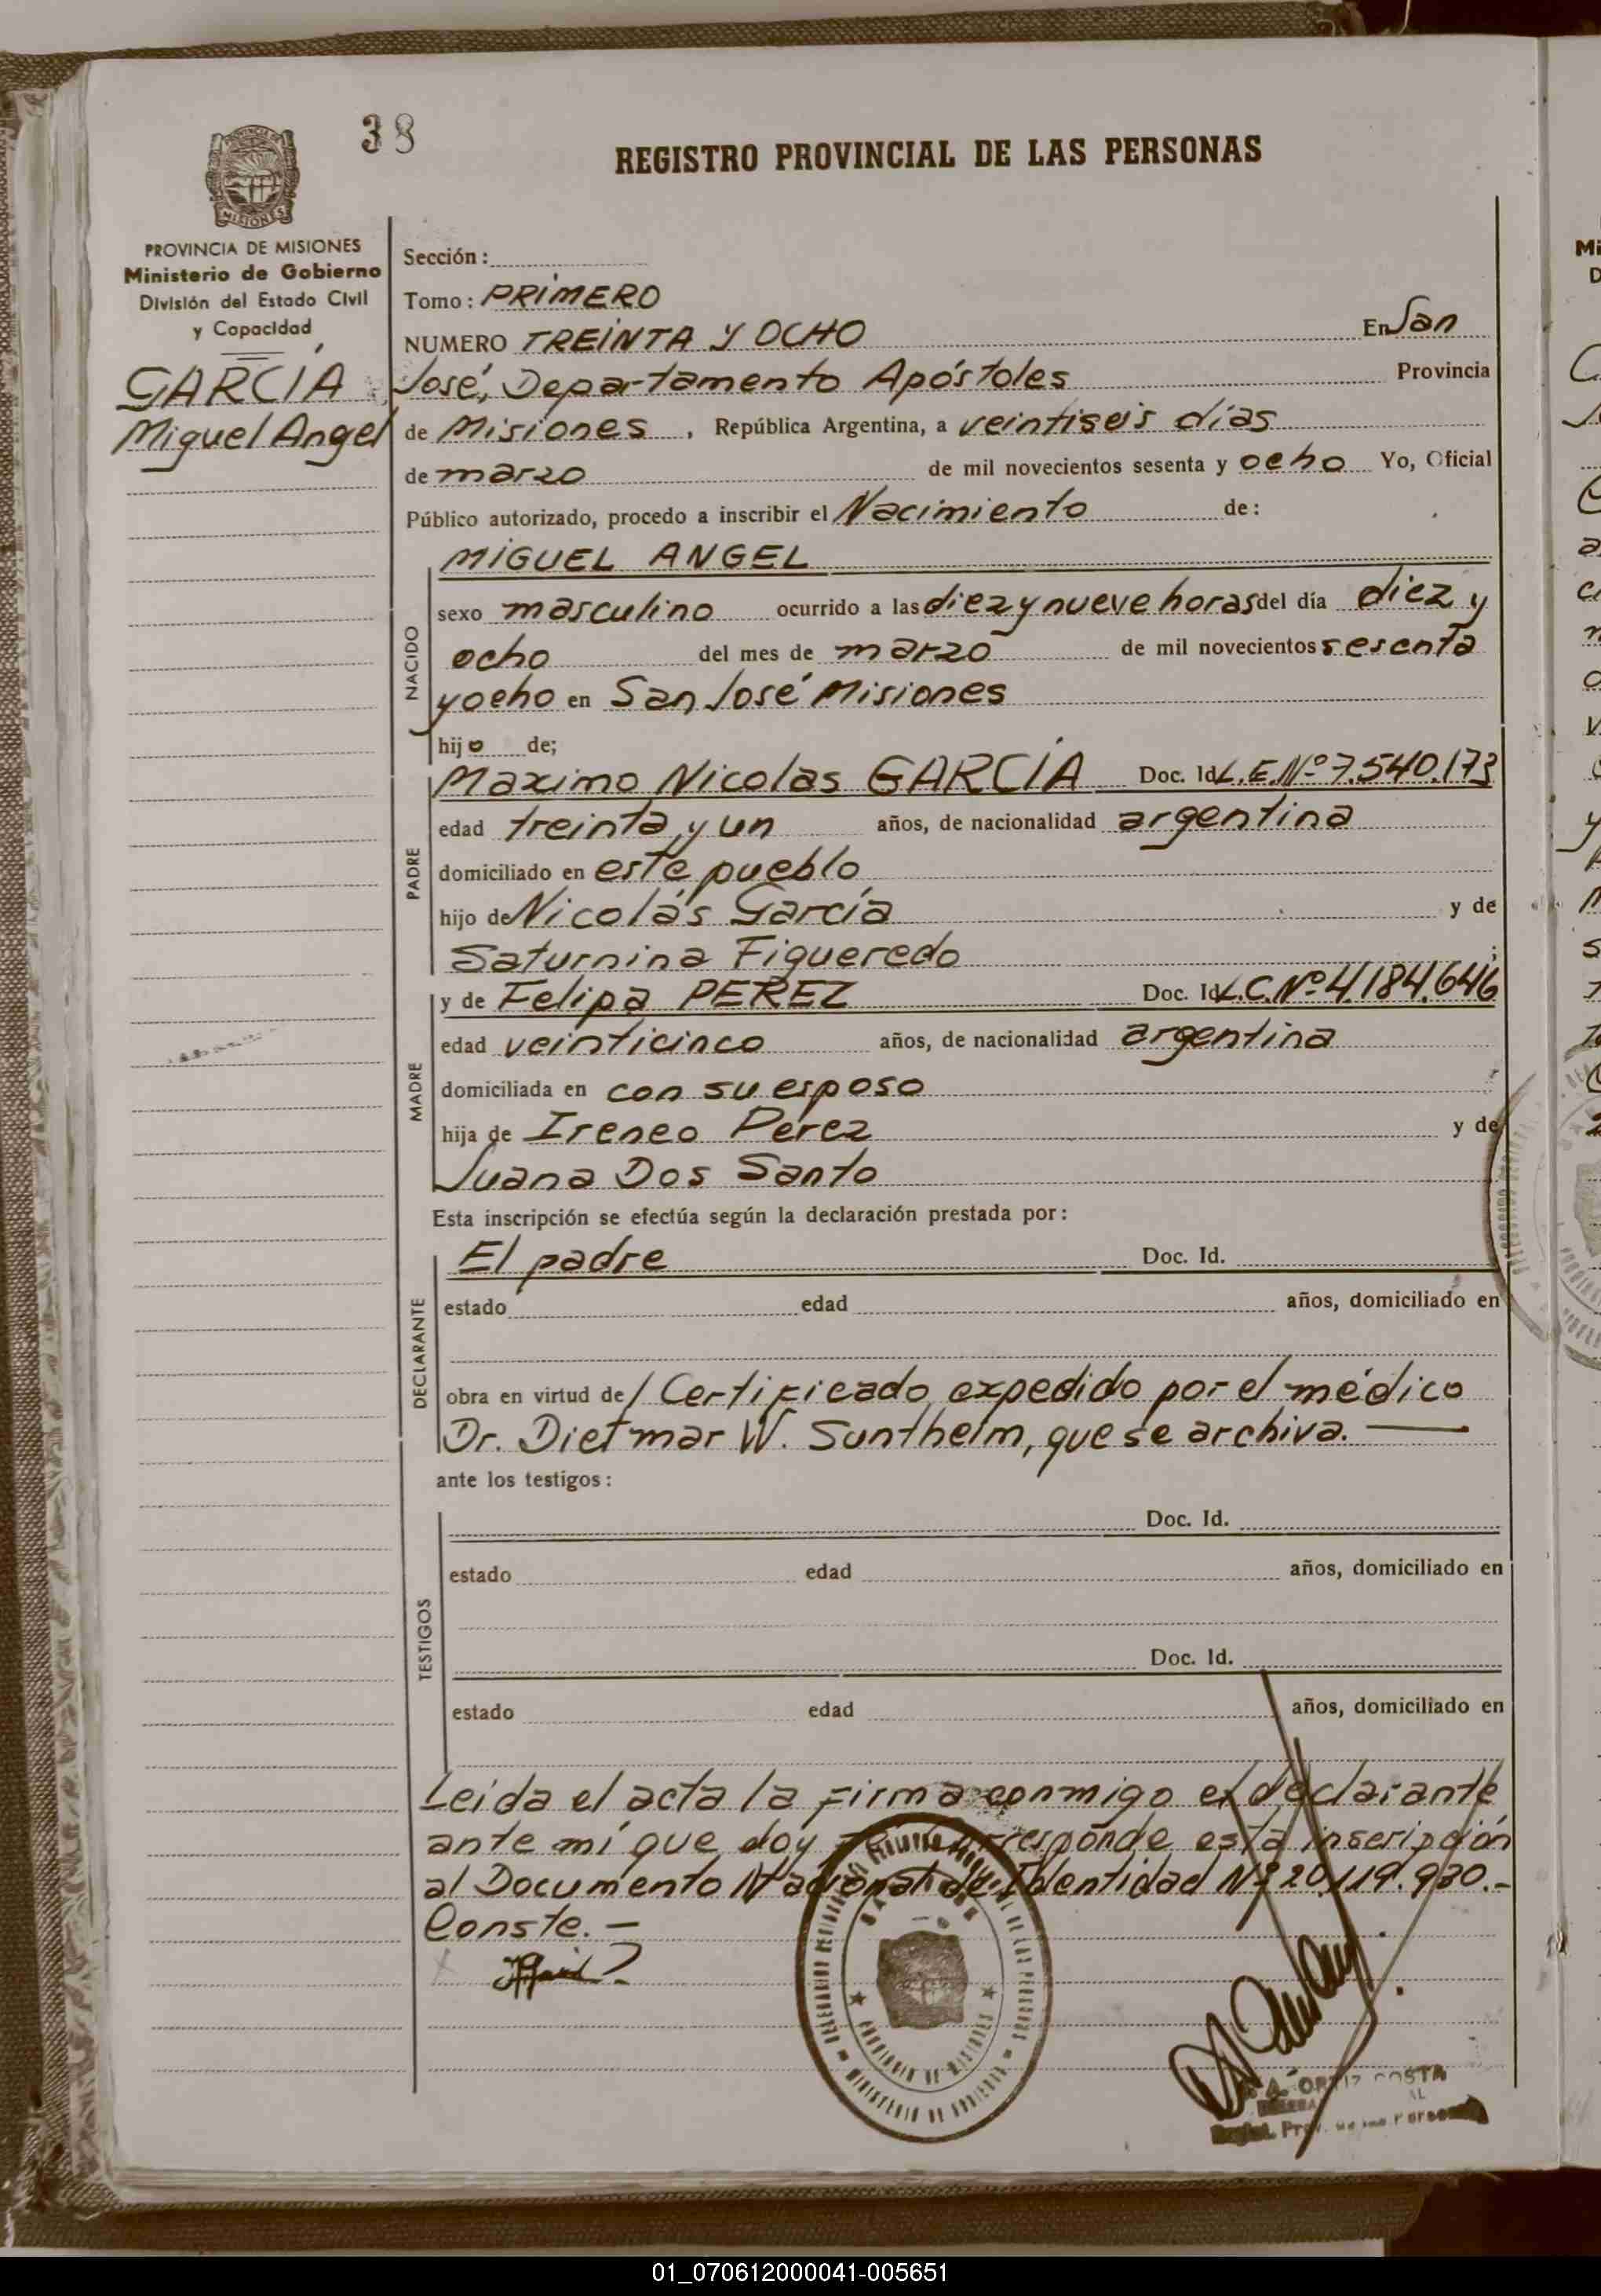 38
REGISTRO PROVINCIAL DE LAS PERSONAS
MISIONES
PROVINCIA DE MISIONES
Ministerio de Gobierno
División del Estado Civil
y Capacidad
GARCÍA
Miguel Angel
Sección :
Tomo : PRIMERO
NUMERO TREINTA Y OCHO En San
José, Departamento Apóstoles Provincia
de Misiones , República Argentina, a veintiseis días
de marzo de mil novecientos sesenta y ocho Yo, Oficial
Público autorizado, procedo a inscribir el Nacimiento de :
NACIDO
MIGUEL ANGEL
sexo masculino ocurrido a las diez y nueve horas del día diez y
ocho del mes de marzo de mil novecientos sesenta
y ocho en San José Misiones
hijo de;
PADRE
Maximo Nicolas GARCÍA Doc. Id. L.E.Nº 7.540.173
edad treinta y un años, de nacionalidad argentina
domiciliado en este pueblo
hijo de Nicolás García y de
Saturnina Figueredo ;
MADRE
y de Felipa PEREZ Doc. Id. L.C.Nº 4.184.646
edad veinticinco años, de nacionalidad argentina
domiciliada en con su esposo
hija de Ireneo Perez y de
Juana Dos Santo
Esta inscripción se efectúa según la declaración prestada por :
DECLARANTE
El padre Doc. Id.
estado edad años, domiciliado en
obra en virtud de / Certificado expedido por el médico
Dr. Dietmar W. Sunthelm, que se archiva. —
ante los testigos :
TESTIGOS
Doc. Id.
estado edad años, domiciliado en
Doc. Id.
estado edad años, domiciliado en
Leida el acta la firma conmigo el declarante
ante mí que doy corresponde esta inscripción
al Documento Nacional de Identidad Nº 20.119.930.-
Conste. —
PROVINCIA DE MISIONES
MINISTERIO DE GOBIERNO
A. ORTIZ COSTA
01_070612000041-005651